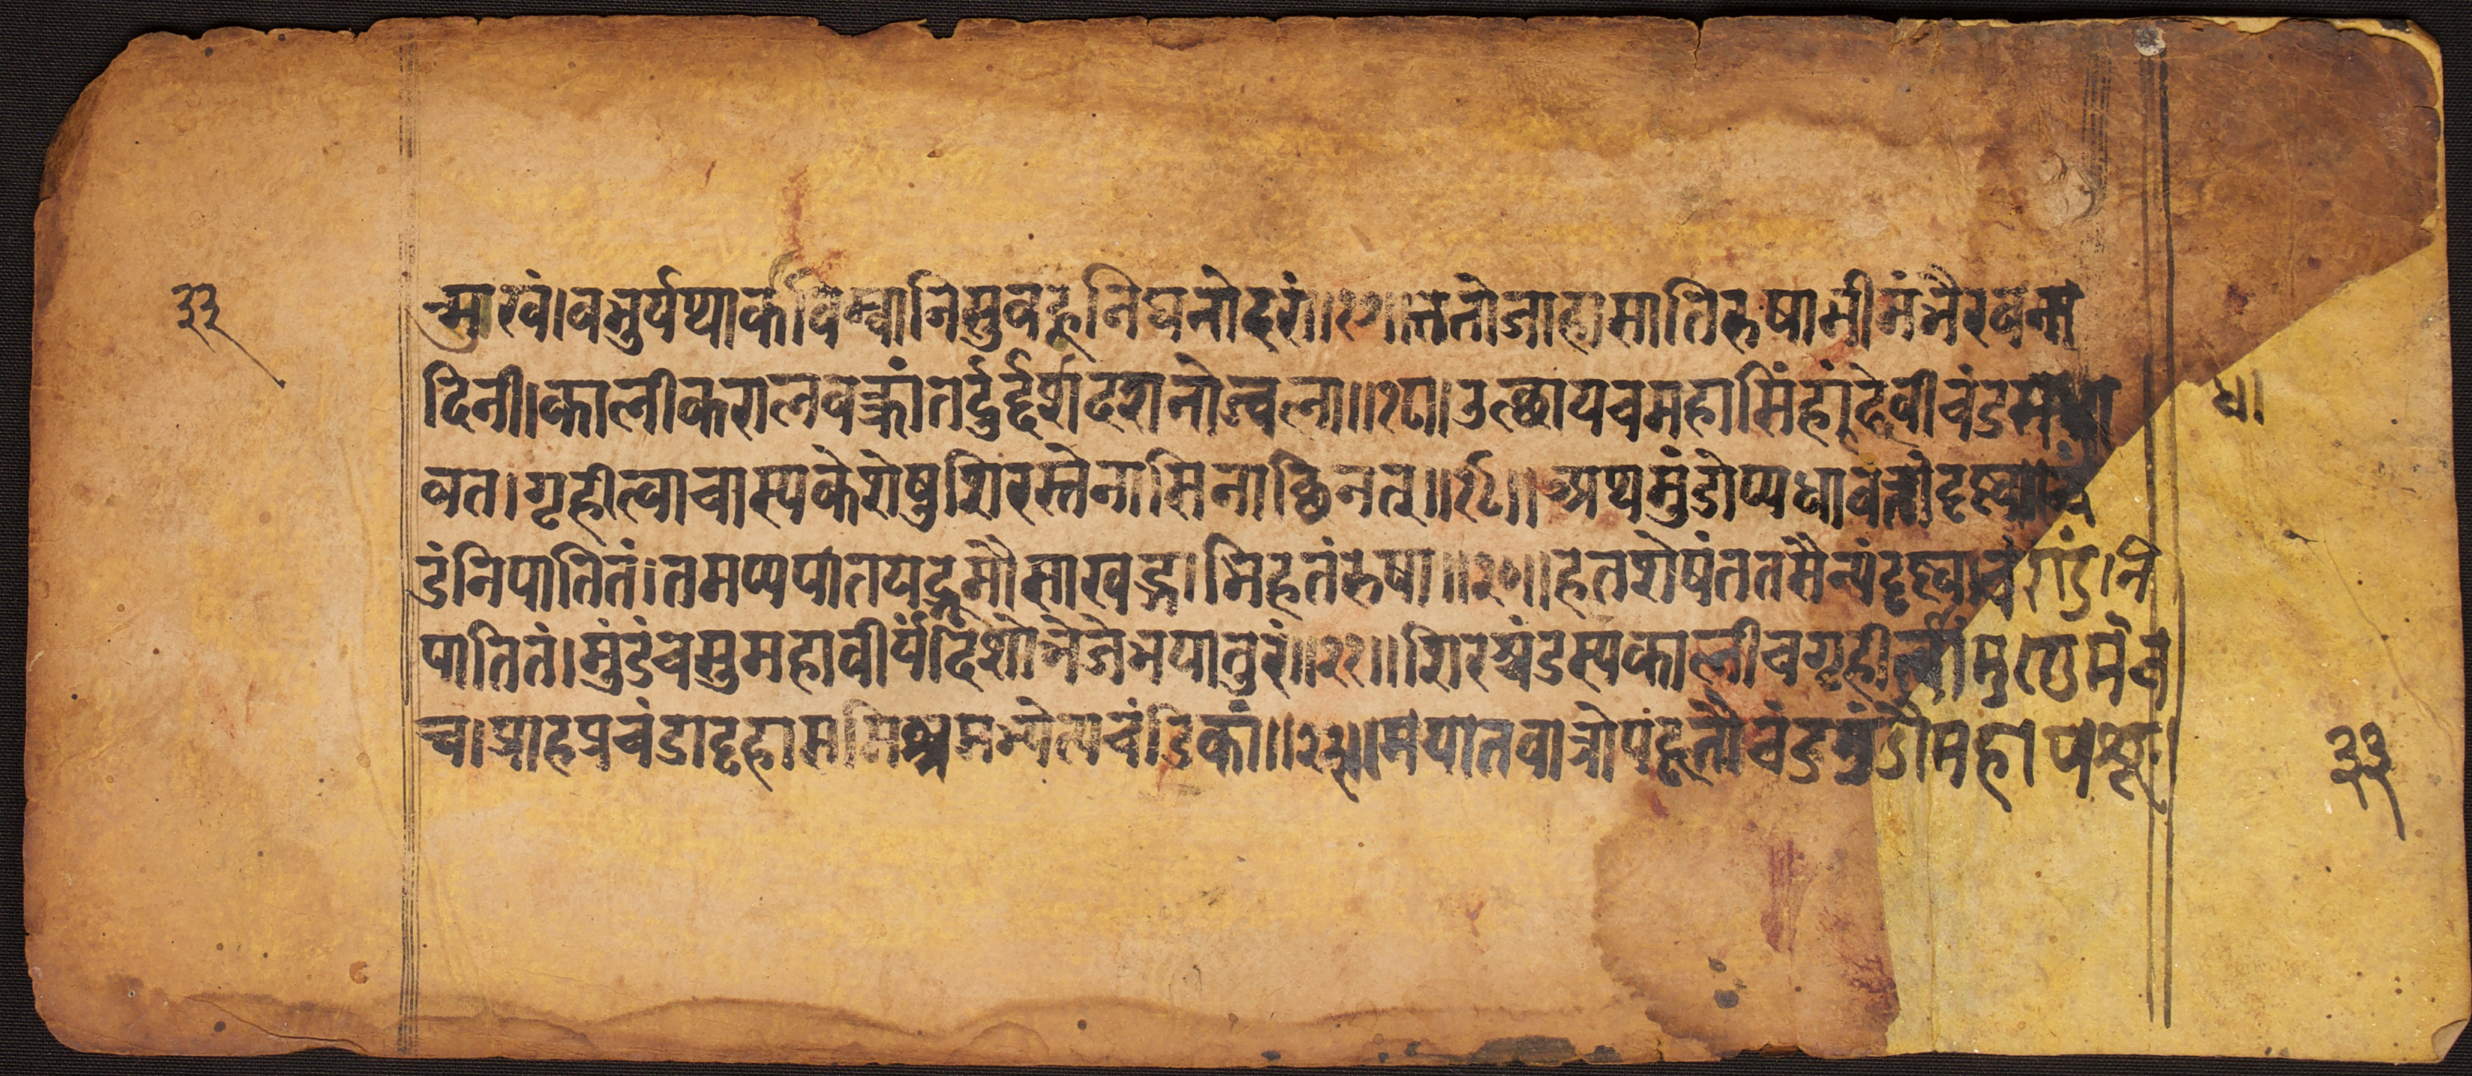 ३३
न्मुखं।वभुर्यथार्कविम्वानिसुवहूनिघनोदरं॥१७॥ततोजाहासातिरुषाभीमंभैरवना
दिनी।कालीकरालवक्त्रांतर्दुर्द्दर्शदशनोज्वला॥१८॥उत्थायचमहासिंहांदेवीचंडमधा
ध।
वत।गृहीत्वाचास्यकेशेषुशिरस्तेनासिनाछिनत्॥१९॥अथमुंडोप्यधावत्तांदृष्ट्वाचं
डंनिपातितं।तमप्यपातयद्भूमौसाखड्गाभिहतंरुषा॥२०॥हतशेषंततसैन्यंदृष्ट्वाचंडंनि
पातितं।मुंडंचसुमहावीर्यंदिशोभेजेभयातुरं॥२१॥शिरश्चंडस्यकालीचगृहीत्वामुंडमेव
च।प्राहप्रचंडाट्टहासमिश्रमभ्येत्यचंडिकां॥२२॥मयातवात्रोपहृतौचंडमुंडौमहापशू।
३३